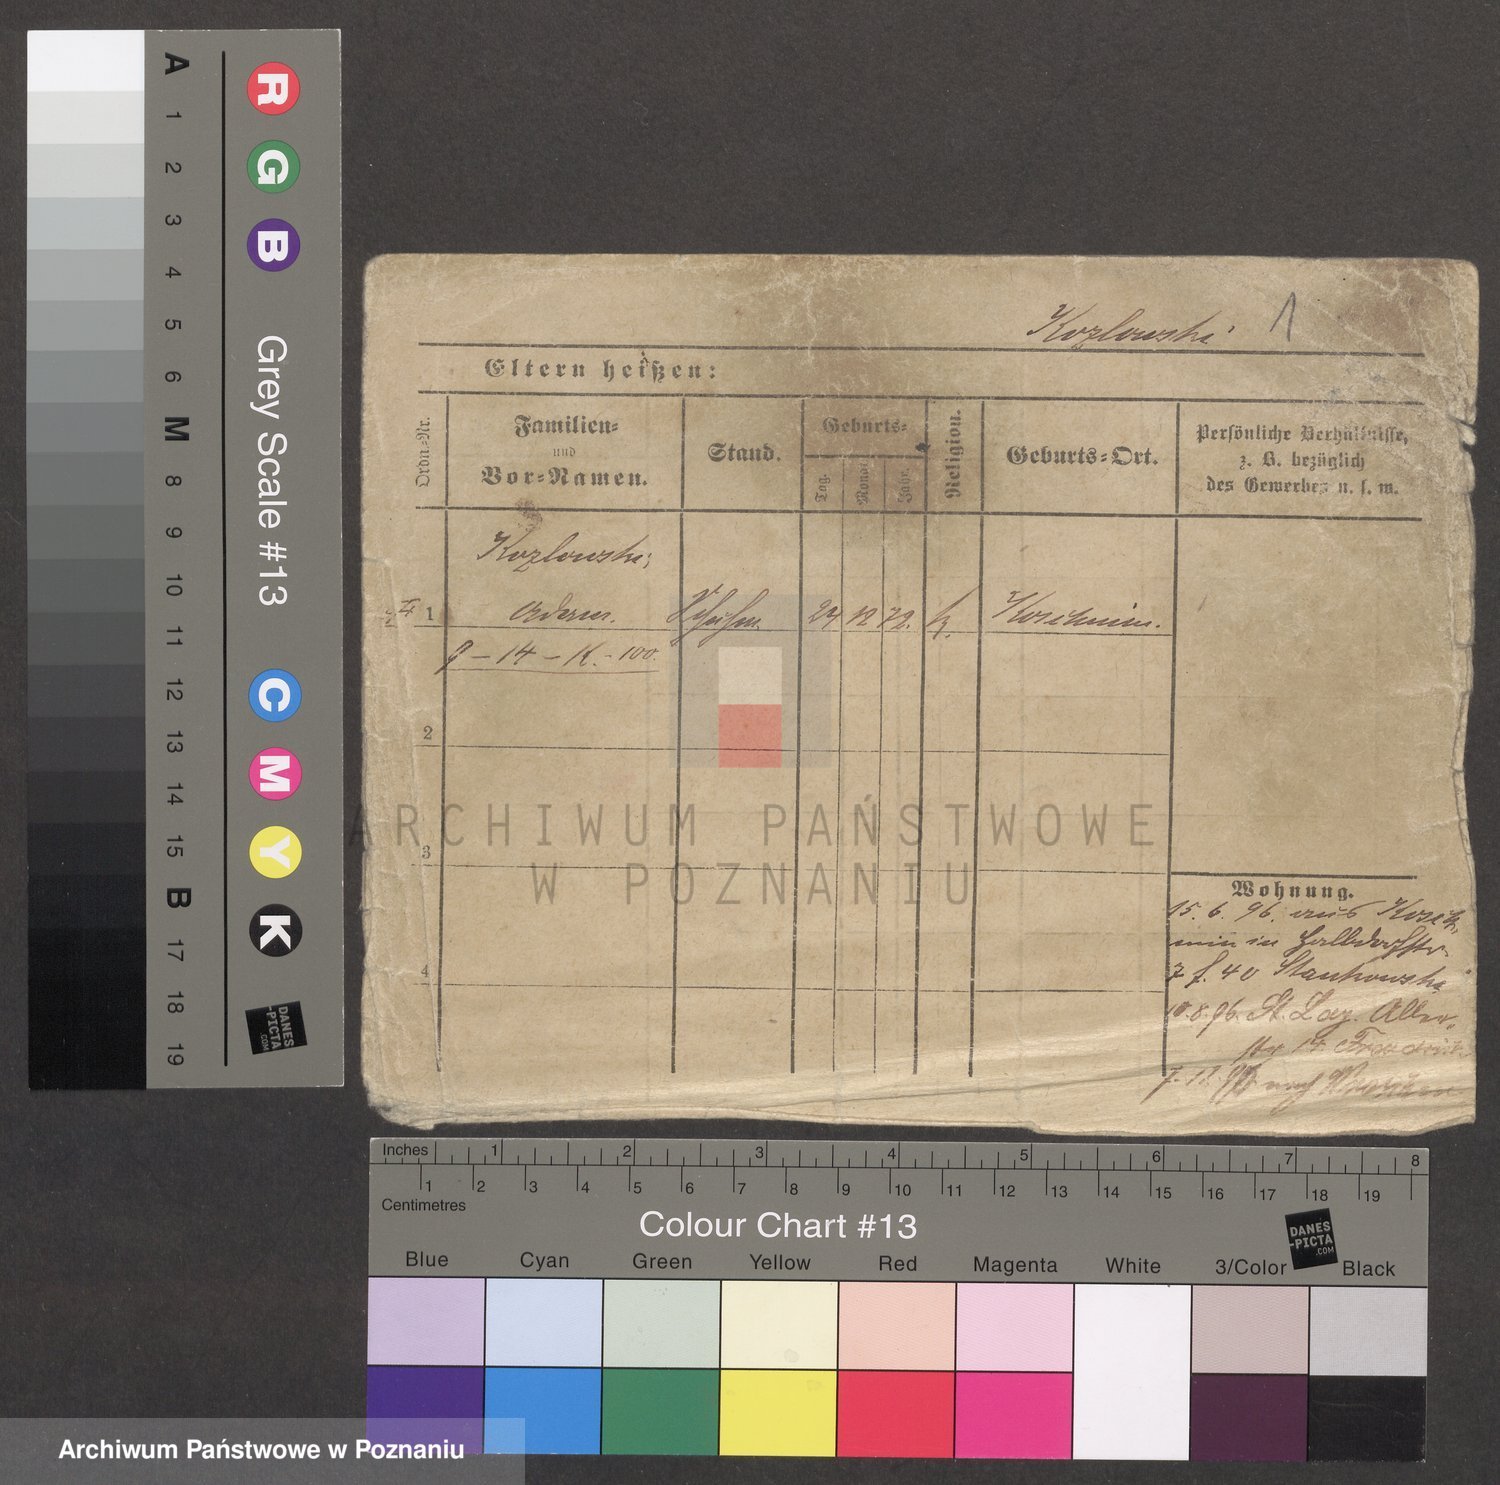 A
1
2
3
4
5
6
M
8
9
10
11
12
13
14
15
B
17
18
19
R G B
Grey Scale #13
C M Y K
DANES
-PICTA
.COM
Kozlowski
1
Eltern heißen:
Ordn.-Nr.
Familien-
und
Vor-Namen.
Stand.
Geburts-
Tag.
Monat.
Jahr.
Religion.
Geburts-Ort.
Persönliche Verhältnisse,
z. B. bezüglich
des Gewerbes u. s. w.
Kozlowski,
1 Adam. 24 12 72. k. Koschmin.
14 - K. - 100.
2
3
4
Wohnung.
15. 6. 96. aus Kosch
min in Halbdorfstr.
7 f. 40 Stankowski
10.8.96. St. Laz.
14
nach
ARCHIWUM PAŃSTWOWE
W POZNANIU
Inches 1 2 3 4 5 6 7 8
1 2 3 4 5 6 7 8 9 10 11 12 13 14 15 16 17 18 19
Centimetres
Colour Chart #13
DANES
-PICTA
.COM
Blue Cyan Green Yellow Red Magenta White 3/Color Black
Archiwum Państwowe w Poznaniu